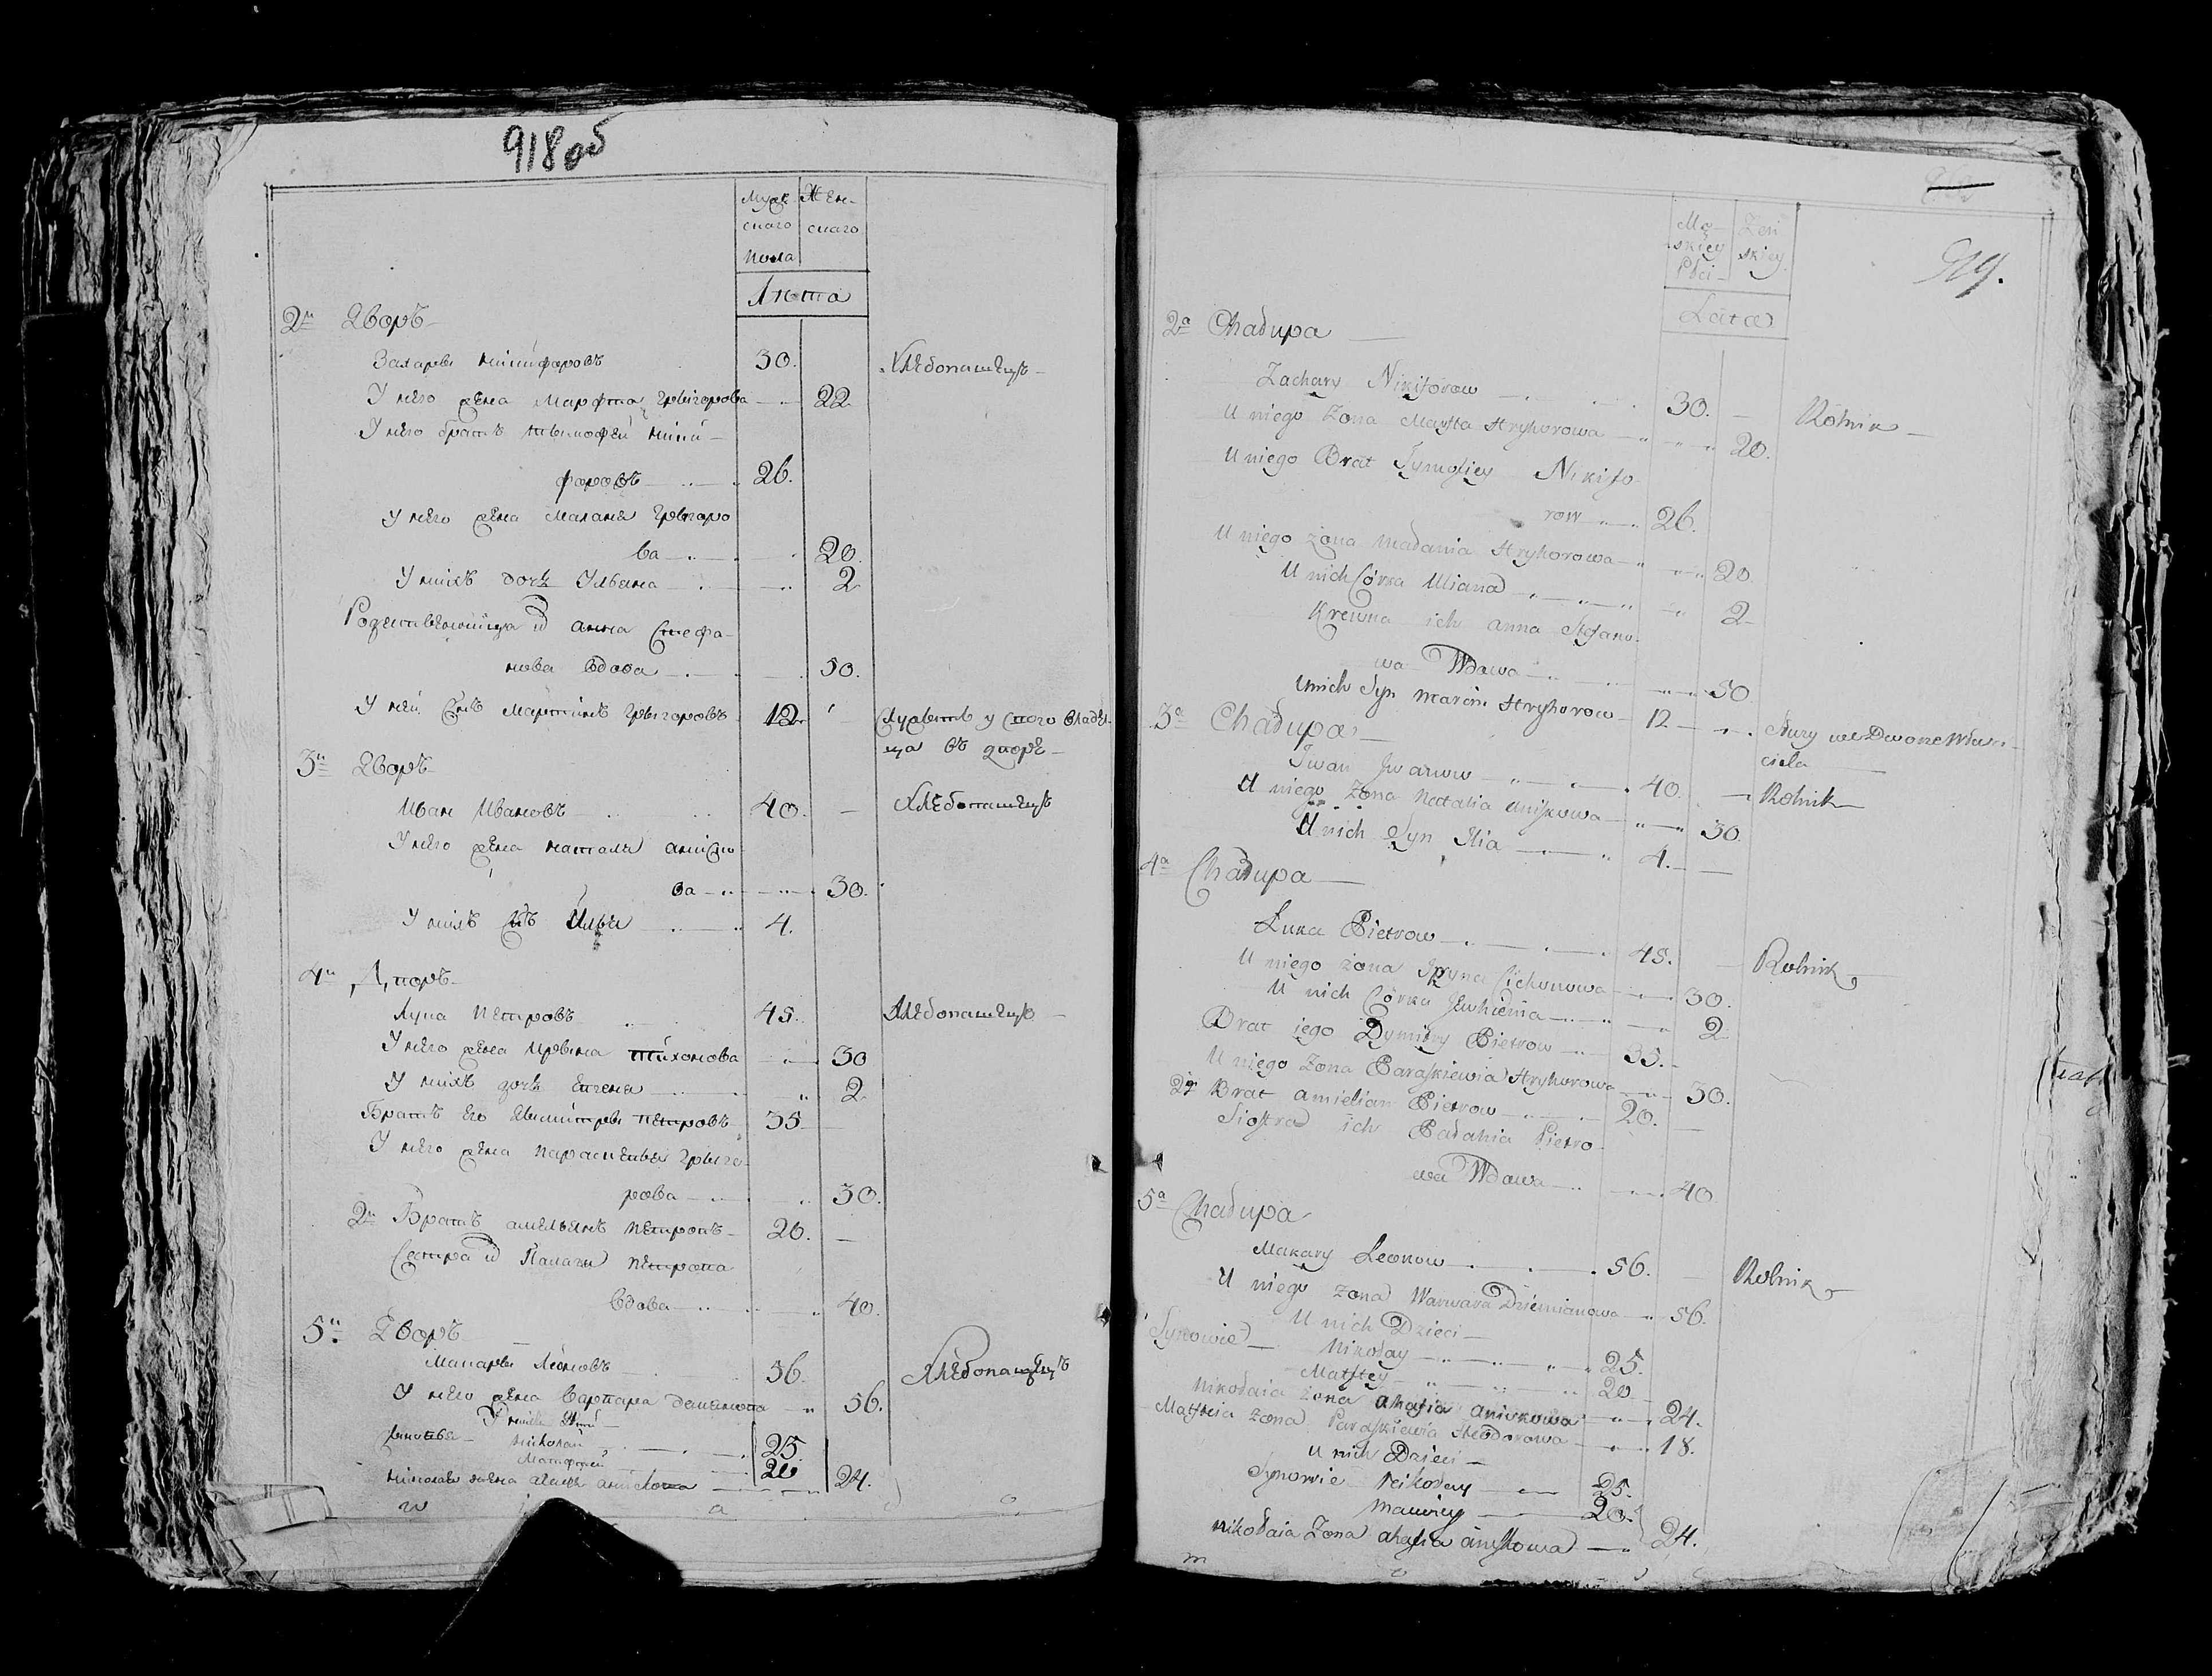 918 об
Муже- Жен-
скаго скаго
пола
Лета
2й Дворъ
Захарые Никифоровъ 30. Хлебопашецъ
У него жена Марфта Грыгорова 22
У него братъ Тымофей Ники-
форовъ 26.
У него жена Малання Грыгоро
ва 20.
У нихъ дочь Ульяна 2
Родственница их Анна Стефа-
нова вдова 50.
У ней сынъ Мартинъ Грыгоровъ 12 Служить у сего владел-
ца въ дворе
3й Дворъ
Иван Ивановъ 40. Хлебопашецъ
У него жена Наталя Аниско
ва 30.
У нихъ сынъ Илья 4.
4й Дворъ
Лука Петровъ 45. Хлебопашецъ
У него жена Ирына Тихонова 30
У нихъ дочь Евгеня 2
Братъ его Дмитры Петровъ 35
У него жена Параскевья Грыго-
рова 30.
2й Братъ Амельянъ Петровъ 20.
Сестра их Палагя Петрова
вдова 40.
5й Дворъ
Макары Леоновъ 56. Хлебопашецъ
У него жена Варвара Демянова 56.
У нихъ дети
сыновья Николай 25
Матфей 20
Николая жена Агафя Анискова 24.
919.
Mę- Żeń
skiey skiey
Płci
Lata
2a Chałupa
Zachary Nikiforow 30. Rolnik
U niego Żona Marfta Hryhorowa 20.
U niego Brat Tymofiey Nikifo
row 26.
U niego żona Małania Hryhorowa 20.
U nich Córka Uliana 2
Krewna ich anna Stefano-
wa Wdowa 50
U nich Syn Marcin Hryhorow 12 Służy we Dworze Właści-
ciela
3a Chałupa
Iwan Iwanow 40. Rolnik
U niego Żona Natalia Aniskowa 30
U nich Syn Ilia 4.
4a Chałupa
Łuka Pietrow 45. Rolnik
U niego żona Iryna Cichonowa 30.
U nich Córka Jewhienia 2
Brat iego Dymitry Pietrow 35.
U niego Żona Paraskiewia Hryhorowa 30.
2gi Brat amielian Pietrow 20.
Siostra ich Pałahia Pietro-
wa Wdowa 40
5a Chałupa
Makary Leonow 56. Rolnik
U niego Żona Warwara Dziemianowa 56.
U nich Dzieci
Synowie Nikołay 25.
Matftey 20
Nikołaia żona ahafia aniskowa 24.
Matfteia żona Paraskiewia Fteodorowa 18.
U nich Dzieci
Synowie Nikołay 25.
20.
Nikołaia Żona ahafia aniskowa 24.